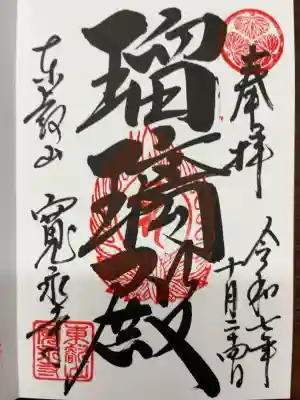 奉拝
令和七年
十月二十四日
瑠璃殿
東叡山
寛永寺